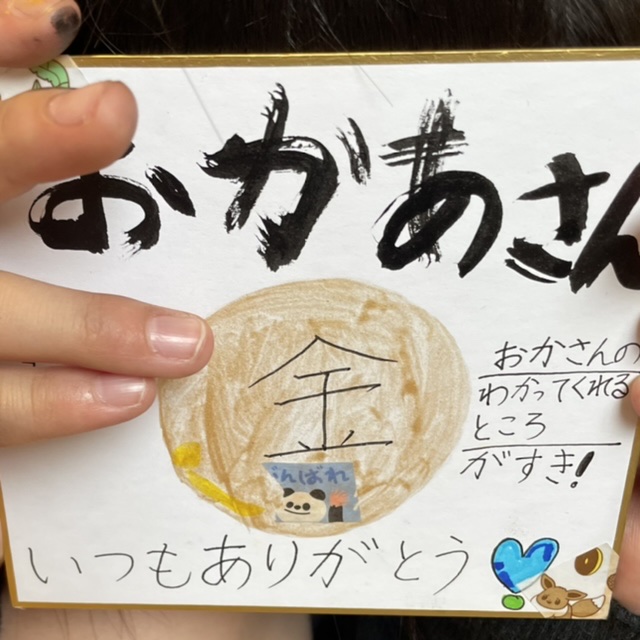 おかあさん
金
がんばれ
おかさんの
わかってくれる
ところ
がすき!
いつもありがとう